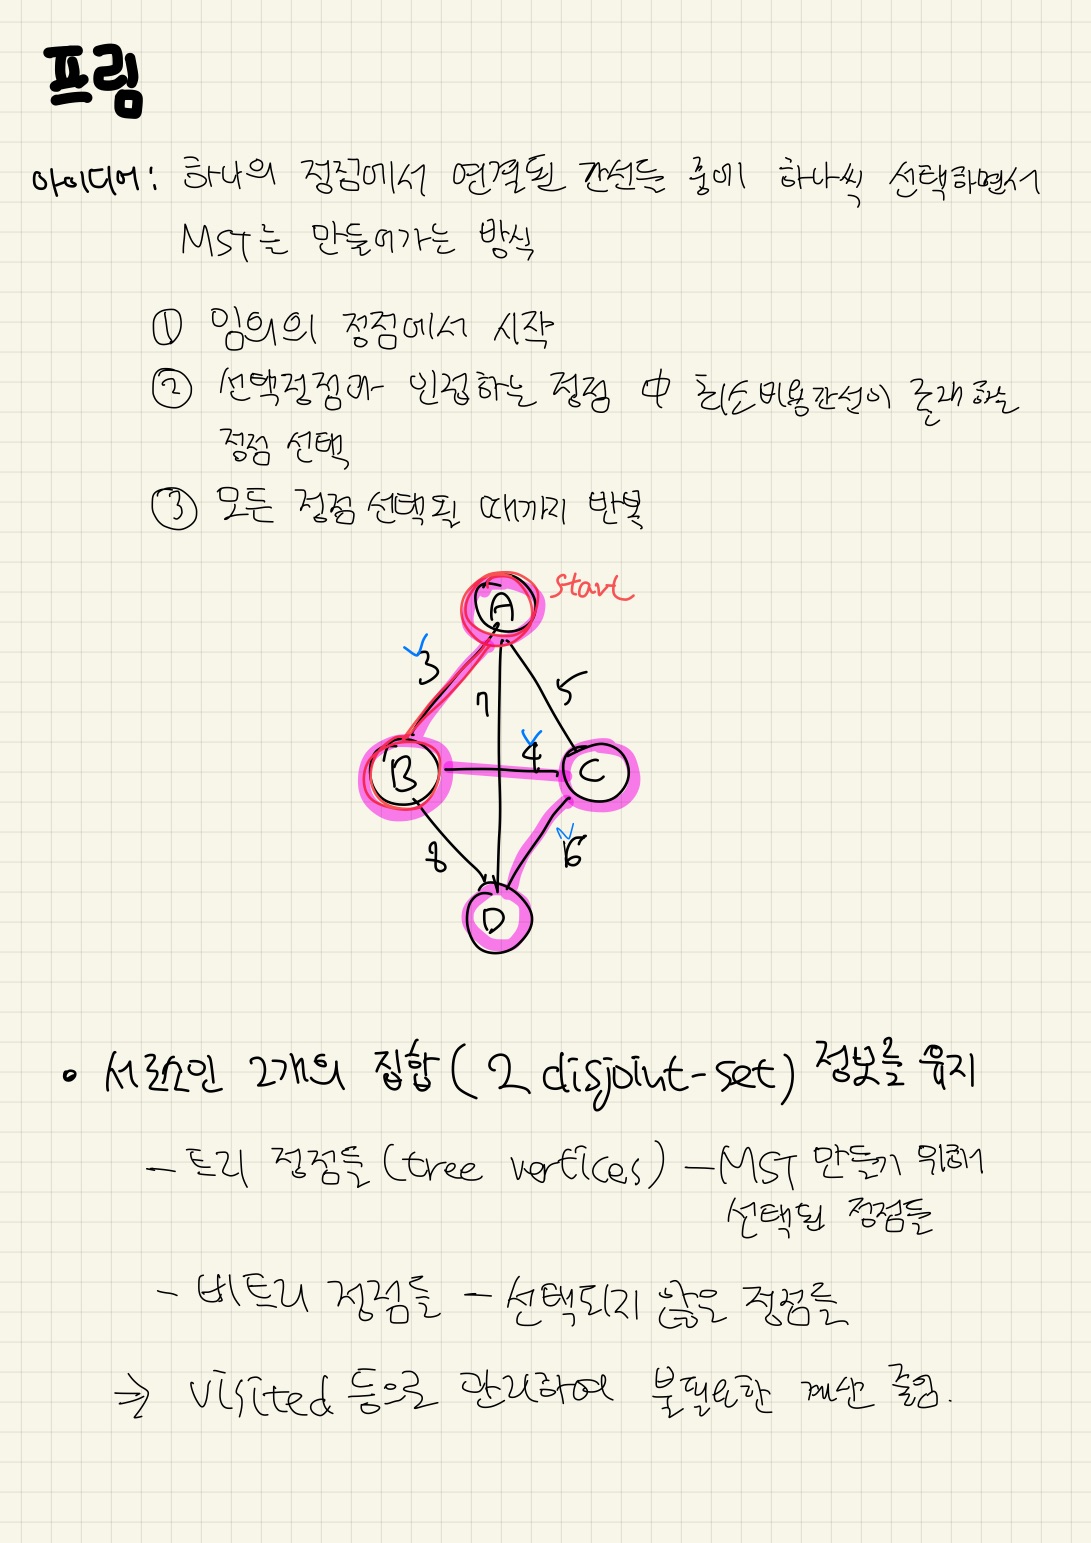 프림
아이디어: 하나의 정점에서 연결된 간선들 중에 하나씩 선택하면서
MST를 만들어가는 방식
① 임의의 정점에서 시작
② 선택정점과 인접하는 정점 中 최소비용간선이 존재하는
정점 선택
③ 모든 정점 선택될 때까지 반복
start
A
3
7
5
B
4
C
8
6
D
• 서로소인 2개의 집합 (2 disjoint-set) 정보를 유지
- 트리 정점들 (tree vertices) - MST 만들기 위해
선택된 정점들
- 비트리 정점들 - 선택되지 않은 정점들
⇒ visited 등으로 관리하여 불필요한 계산 줄임.